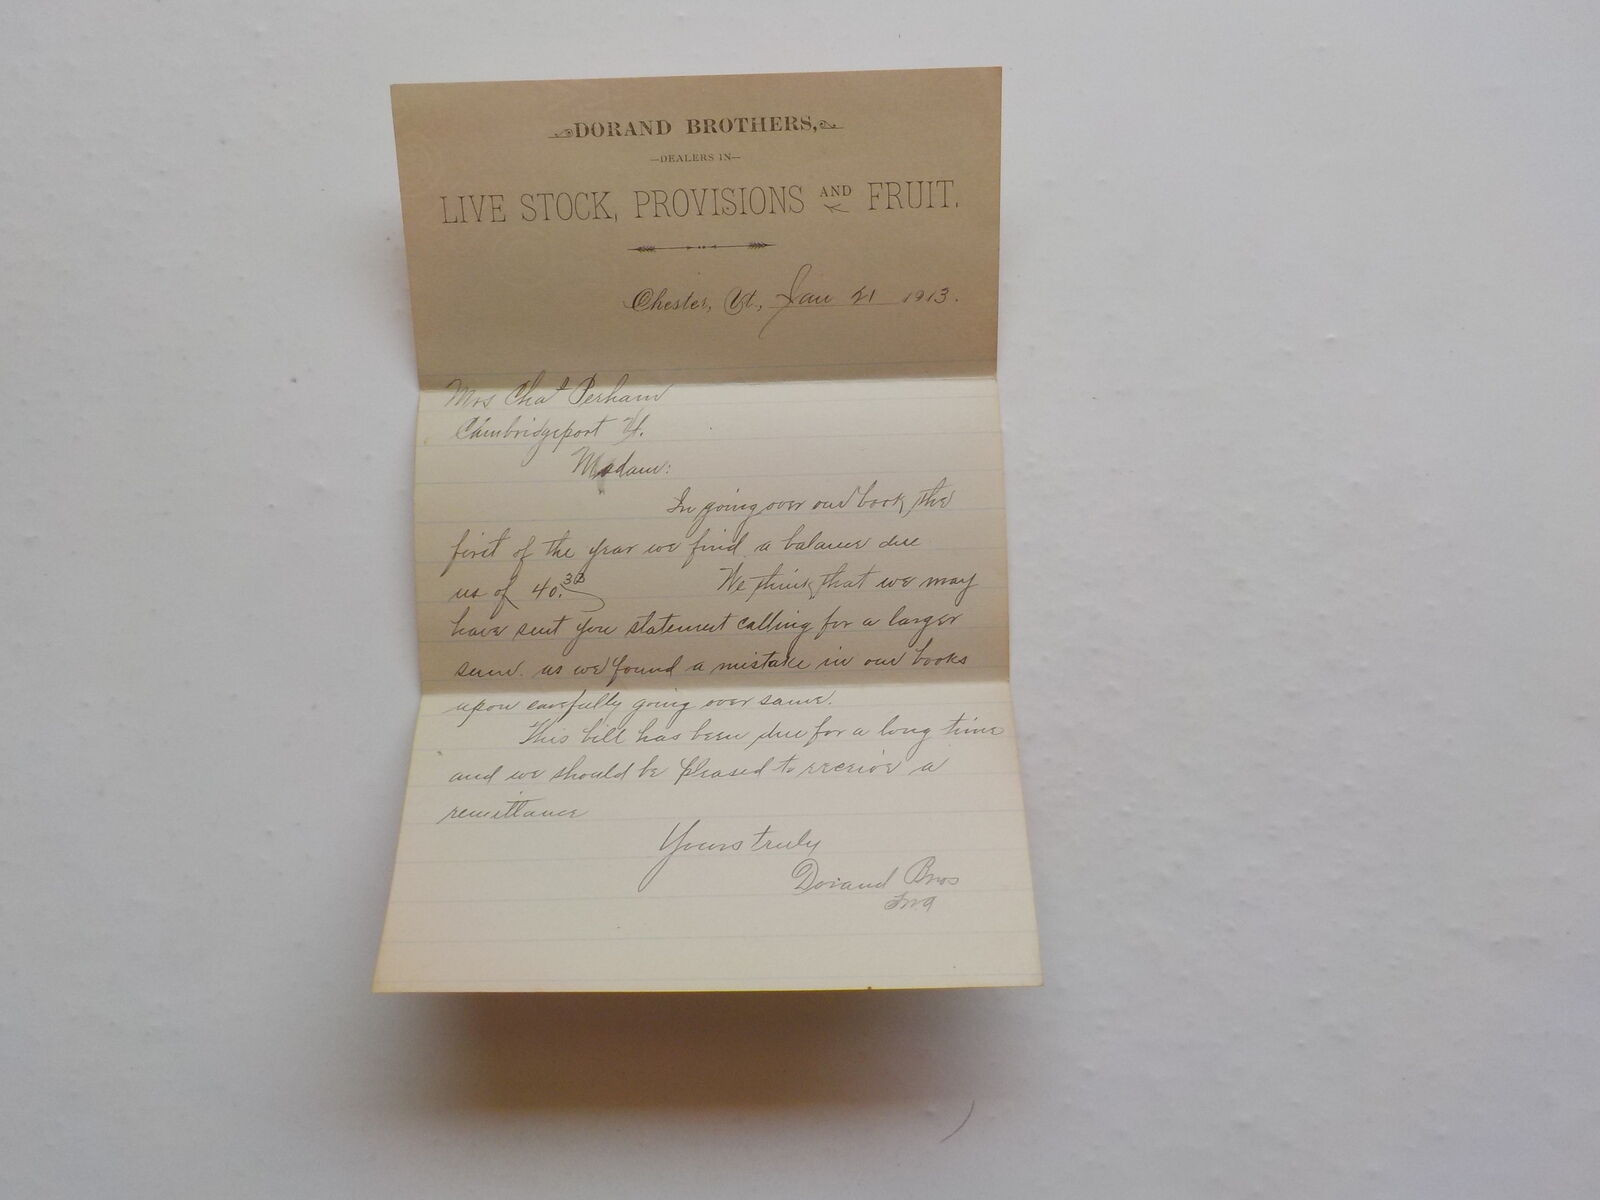 DORAND BROTHERS,
—DEALERS IN—
LIVE STOCK, PROVISIONS AND FRUIT.
Chester, Vt., Jan 21 1913.
Mrs Chas Perham
Cambridgeport Vt.
Madam:
In going over our book, the
first of the year we find a balance due
us of 40.38 We think that we may
have sent you statement calling for a larger
sum. as we found a mistake in our books
upon carefully going over same.
This bill has been due for a long time
and we should be pleased to receive a
remittance
Yours truly
Dorand Bros